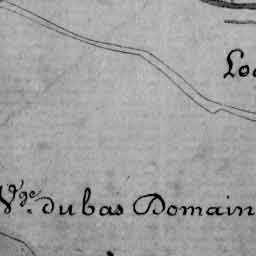 Loc
Vge. du bas Domain